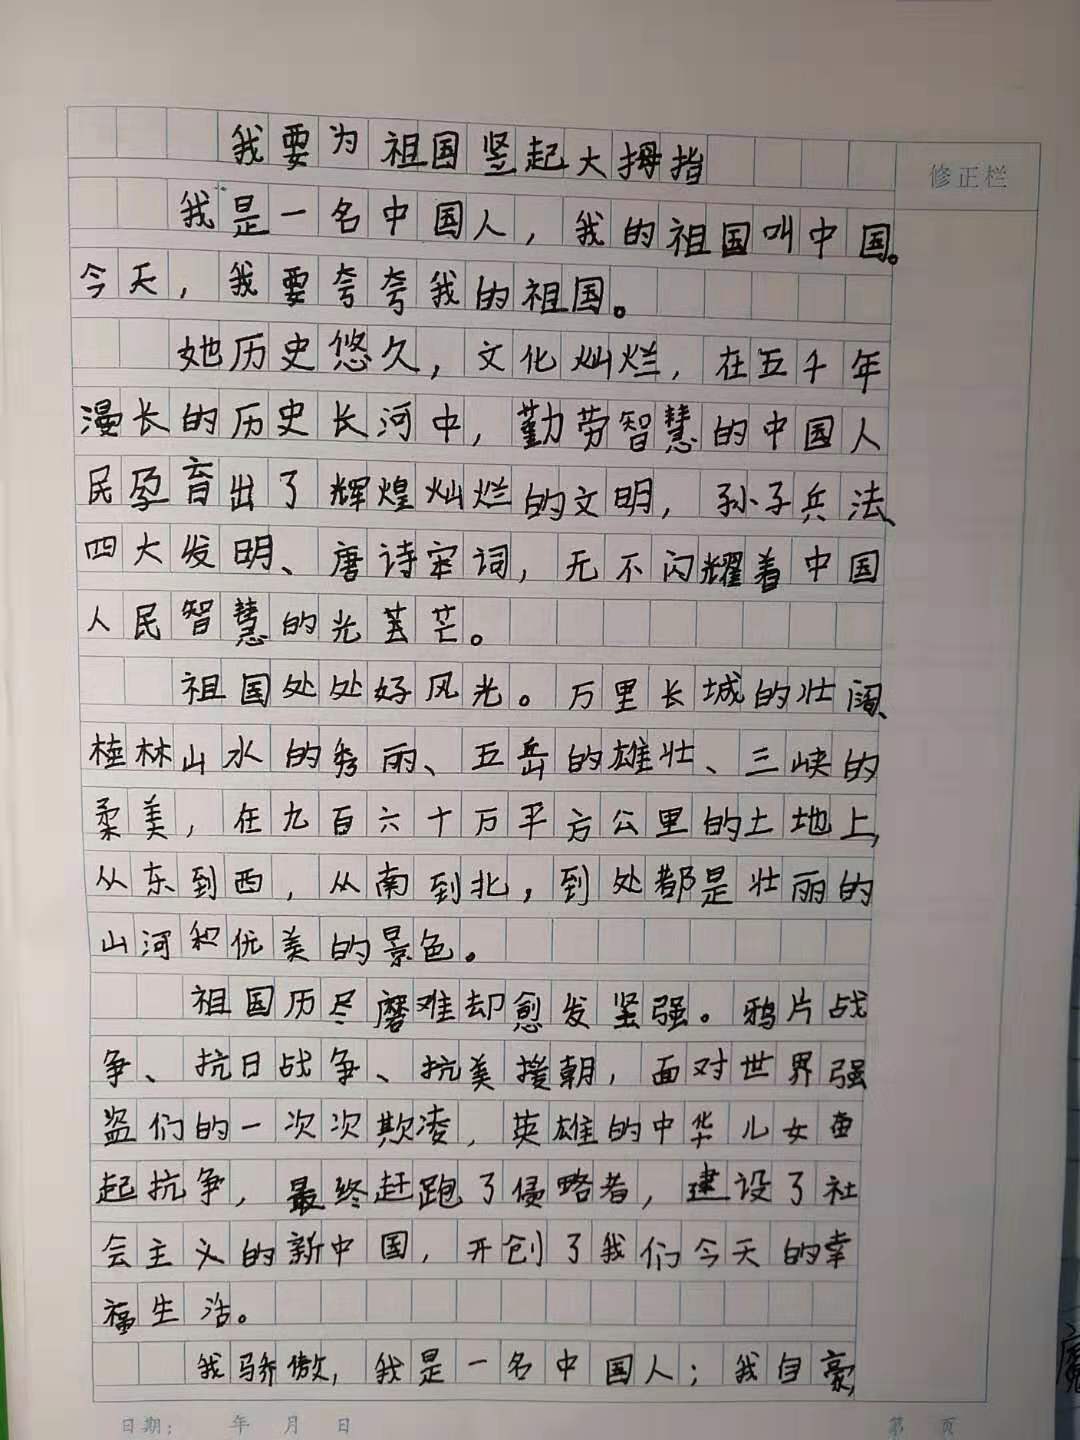 我要为祖国竖起大拇指
修正栏
我是一名中国人，我的祖国叫中国。
今天，我要夸夸我的祖国。
她历史悠久，文化灿烂，在五千年
漫长的历史长河中，勤劳智慧的中国人
民孕育出了辉煌灿烂的文明，孙子兵法、
四大发明、唐诗宋词，无不闪耀着中国
人民智慧的光芒。
祖国处处好风光。万里长城的壮阔、
桂林山水的秀丽、五岳的雄壮、三峡的
柔美，在九百六十万平方公里的土地上，
从东到西，从南到北，到处都是壮丽的
山河和优美的景色。
祖国历尽磨难却愈发坚强。鸦片战
争、抗日战争、抗美援朝，面对世界强
盗们的一次次欺凌，英雄的中华儿女奋
起抗争，最终赶跑了侵略者，建设了社
会主义的新中国，开创了我们今天的幸
福生活。
我骄傲，我是一名中国人；我自豪，
日期： 年 月 日
第 页